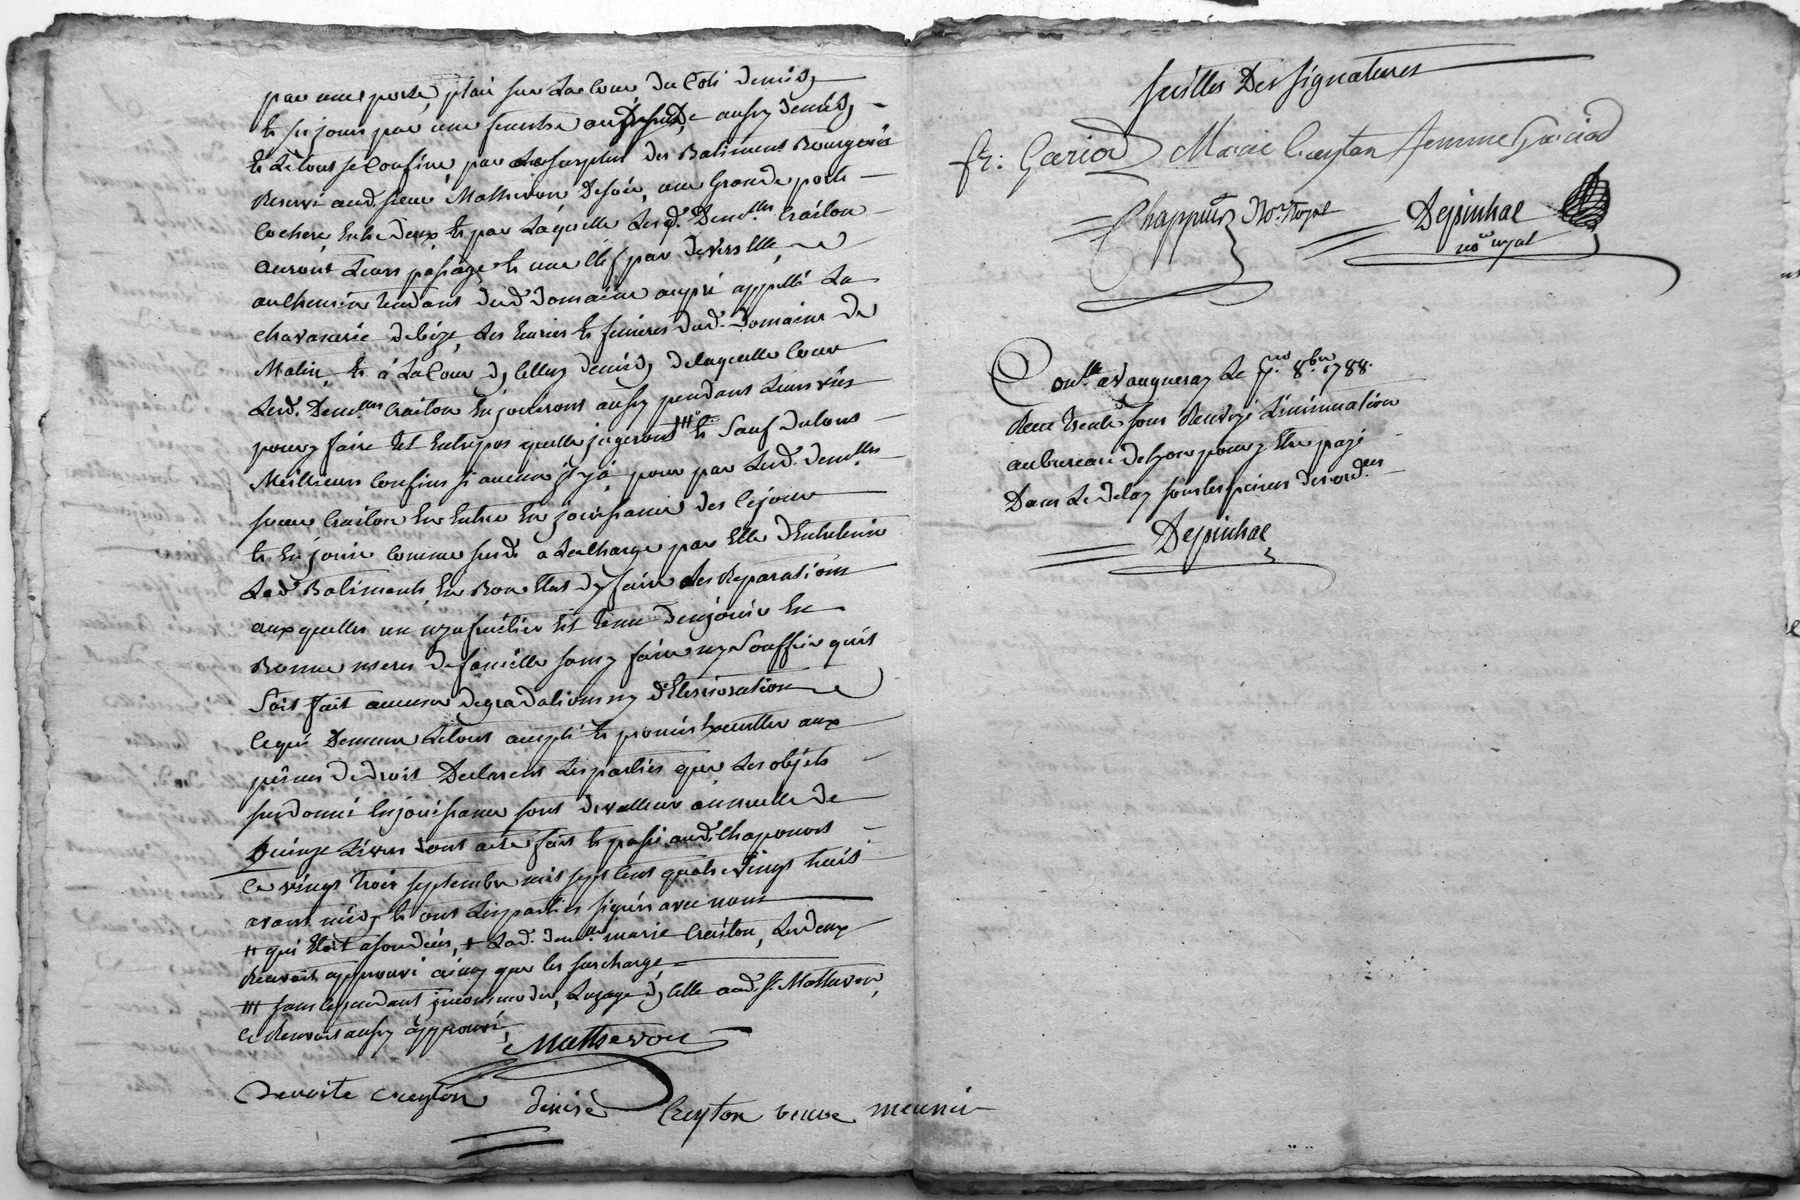 par une porte, plait sur La Cour du Coté de midy
et ses jours par une fenestre audessus, aussy de midy,
et Le tout se Confine, par Le surplus des Batiment Bourgeois
Reservé aud. sieur Mathevon De soir, une Grande porte
Cochere, Entre deux, et par Laquelle Lesd. Demlles Craiton
auront Leurs passage et une clef par devers Elle
au Chemin tendant dud. Domaine appellé La
chavasserie de bize, Les Ecuries et fenieres dud. Domaine de
Matin, et à La Cour d'icelluy de midy, de laquelle Cour
Lesd. Demlles Craiton En jouiront aussy pendant Leurs vies
pour y faire Entrepos quelle jugeront ### et Sauf du tout
Meilleurs Confins si aucun il y a pour par Lesd. demlles
sœur Craiton En Entrer En jouissance des Cejour
et En jouir Comme susd. a La Charge par Elle d'Entretenir
Lesd. Batiments En Bon Etat d'y faire Les Reparations
auxquelles un uzufruitier Est tenu d'en jouir En
Bonne mere de famille sans y faire ny Souffrir qu'il
Soit fait aucune degradations ny déterioration
Ce qui Demeure Le tout accepté et promis Executter aux
peines de droit Declarent Les parties que Les objets
sus donné En jouissance sont de valleur annuelle de
Quinze Livres Dont acte fait et passé aud. Chaponost
Ce vingt trois septembre mil sept Cent quatre vingt huit
avant midy et ont Les parties signés avec nous
# qui Etoit , + Lad. demlle marie Craiton, Les deux
Renvoit approuvé ainsy que les surcharge
### sans Cependant incommoder, Luzage d'icelle aud. sr. Mathevon,
Ce Renvoit aussy approuvé
Mathevon
Benoite creyton denise Creyton veuve meunié
suittes Des signatures
fr: Gariod Marie Creyton femme Gariod
Chappuis No.re Royal Depinhac
no.re royal
Con.lle a Vaugneray Le 8.bre 1788.
Reçu sous Renvoyé Linsinuation
au bureau de Lyon pour y Etre payé
Dans Le delay sous les peines de
Depinhac